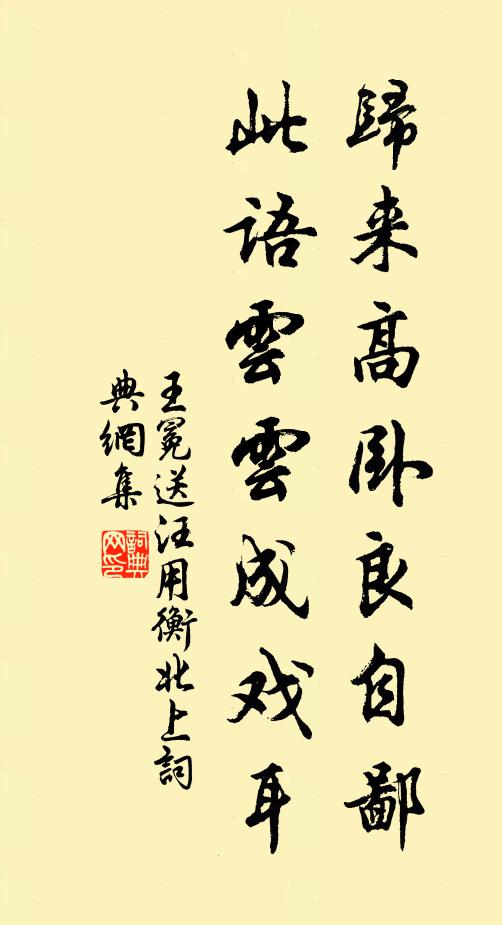 歸来高卧良自鄙
此語雲雲成戏耳
王冕送汪用衡北上詞
典網集
詞典
网印